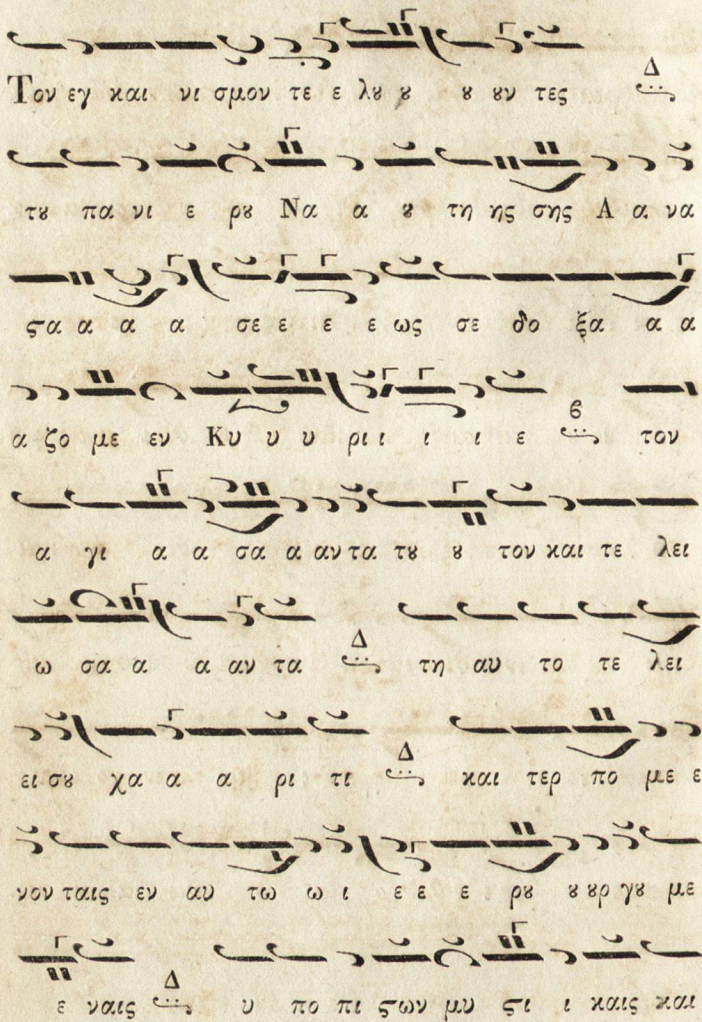 Τον εγ και νι σμον τε ε λȣ ȣ ȣ ȣν τες Δ
τȣ πα νι ε ρȣ Να α ȣ τη ης σης Α α να
ϛα α α α σε ε ε ε ως σε δο ξα α α
α ζο με εν Κυ υ υ ρι ι ι ι ε ϐ τον
α γι α α σα α αν τα τȣ ȣ τον και τε λει
ω σα α α αν τα Δ τη αυ το τε λει
ει σȣ χα α α ρι τι Δ και τερ πο με ε
νον ταις εν αυ τω ω ι ε ε ε ρȣ ȣρ γȣ με
ε ναις Δ υ πο πι ϛων μυ ϛι ι καις και